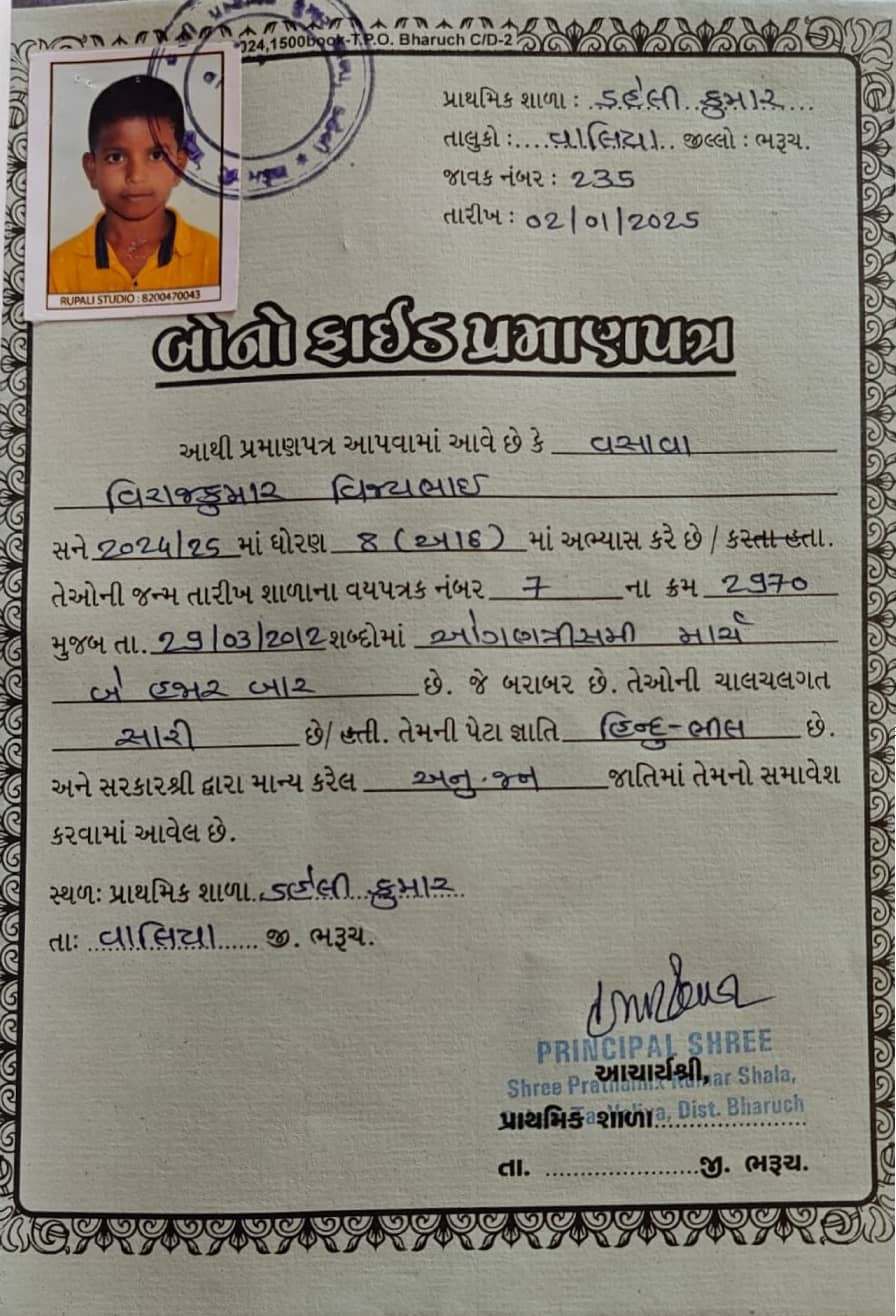 2024,1500book-T.P.O. Bharuch C/D-2
પ્રાથમિક શાળા : ડહેલી કુમાર
તાલુકો : વાલિયા જીલ્લો : ભરૂચ.
જાવક નંબર : 235
તારીખ : 02/01/2025
RUPALI STUDIO : 8200470043
બોનો ફાઈડ પ્રમાણપત્ર
આથી પ્રમાણપત્ર આપવામાં આવે છે કે વસાવા
વિરાજકુમાર વિજયભાઈ
સને 2024/25 માં ધોરણ 8 (આઠ) માં અભ્યાસ કરે છે / કરતા હતા.
તેઓની જન્મ તારીખ શાળાના વયપત્રક નંબર 7 ના ક્રમ 2970
મુજબ તા. 29/03/2012 શબ્દોમાં ઓગણત્રીસમી માર્ચ
બે હજાર બાર છે. જે બરાબર છે. તેઓની ચાલચલગત
સારી છે/ હતી. તેમની પેટા જ્ઞાતિ હિન્દુ-ભીલ છે.
અને સરકારશ્રી દ્વારા માન્ય કરેલ અનુ.જન જાતિમાં તેમનો સમાવેશ
કરવામાં આવેલ છે.
સ્થળઃ પ્રાથમિક શાળા ડહેલી કુમાર
તાઃ વાલિયા જી. ભરૂચ.
PRINCIPAL SHREE
આચાર્યશ્રી,
Shree Prathmik Kumar Shala,
પ્રાથમિક શાળા
Ta. Valiya, Dist. Bharuch
તા. જી. ભરૂચ.